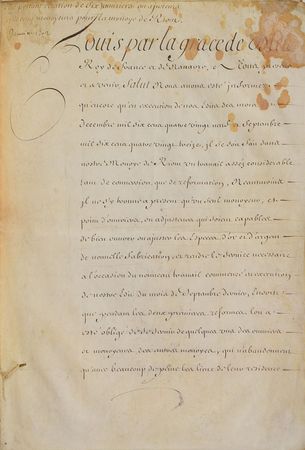 portant création de Six
monoyeurs pour la monoye de Riom
Louis par la grace de Dieu
Roy de france et de Navarre, a
et a venir, Salut Nous avons esté informez
qu'encore qu'en execution de nos Edits des mois
Decembre mil six cens quatre vingt neuf et Septembre
mil six cens quatre vingt treize, il se soit fait dans
nostre Monoye de Riom un travail assez considerable
tant de conversion, que de reformation, Neantmoins
il ne s'y trouve a present qu'un seul monoyeur, et
point d'ouvriers, ou ajusteurs qui soient capables
de bien ouvrer et ajuster les Especes d'or et d'argent
de nouvelle fabrication, et rendre le service necessaire
a l'occasion du nouveau travail commencé en execution
de nostre Edit du mois de Septembre dernier, Ensorte
que pendant les deux premieres reformes, l'on a
esté obligé de se servir de quelques uns des ouvriers
et monoyeurs des autres monoyes, qui n'abandonnent
qu'avec beaucoup de peine les lieux de leur residence